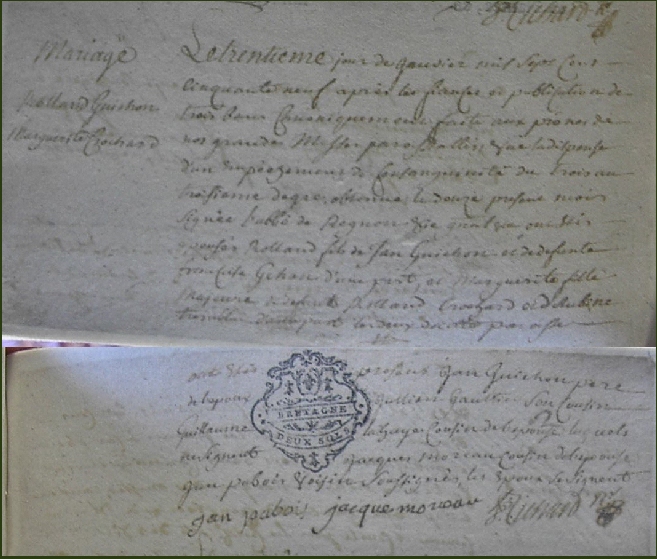 Richard Rr
Mariage
Rolland Guichon
Marguerite Crochard
Le trentieme jour de janvier mil sept cent
cinquante neuf apres les fiancés et publication de
trois bans canoniquement faite aux prones de
nos grandes Messes paroissialles vue la dispense
d'un empechement de consanguinité du trois au
troisieme degré obtenue le douze presant mois
signée l'abbé de
epousés Rolland fils de Jan Guichon et de defunte
francoise Gehan d'une part, et Marguerite fille
Majeure de defunt Rolland Crochard et d'
d'autre part tous deux de cette paroisse
ont été presans Jan Guichon pere
de lepoux Jullien Gaultier son cousin
Guillaume cousin de lepouse lesquels
ne signent Jacques moreau cousin de lepouse
jan pabois voisin soussignés les epoux ne signent
BRETAGNE
DEUX SOLS
jan pabois jacque moreau Richard Rr